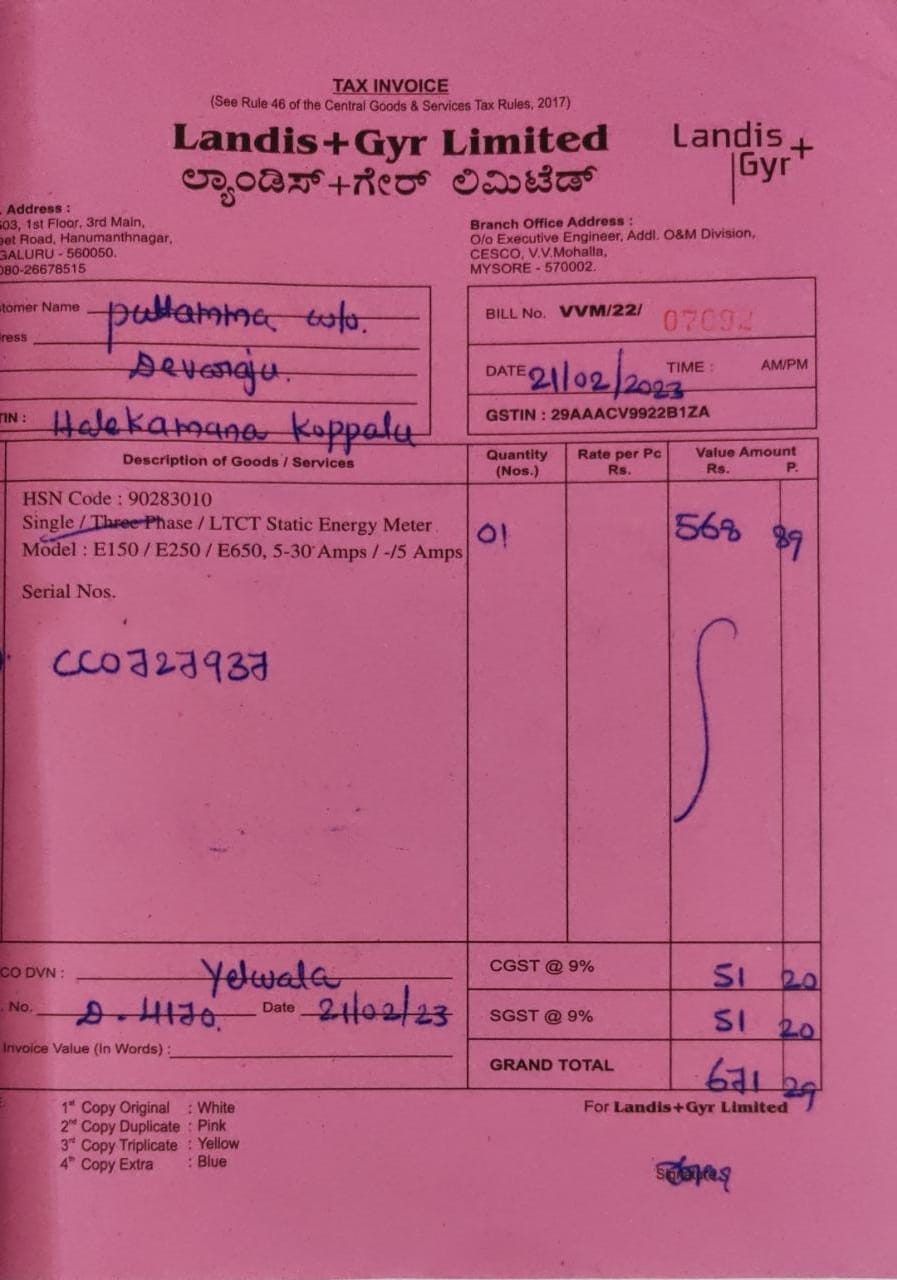 TAX INVOICE
(See Rule 46 of the Central Goods & Services Tax Rules, 2017)
Landis+Gyr Limited
ಲ್ಯಾಂಡಿಸ್+ಗೇರ್ ಲಿಮಿಟೆಡ್
Landis
Gyr+
Address :
03, 1st Floor, 3rd Main,
eet Road, Hanumanthnagar,
GALURU - 560050.
080-26678515
Branch Office Address :
O/o Executive Engineer, Addl. O&M Division,
CESCO, V.V.Mohalla,
MYSORE - 570002.
tomer Name Puttamma w/o.
ress
Devaraju.
TIN : Halekamana Koppalu
BILL No. VVM/22/ 07092
DATE 21/02/2023 TIME : AM/PM
GSTIN : 29AAACV9922B1ZA
Description of Goods / Services
Quantity (Nos.)
Rate per Pc Rs.
Value Amount Rs. P.
HSN Code : 90283010
Single / Three Phase / LTCT Static Energy Meter
Model : E150 / E250 / E650, 5-30 Amps / -/5 Amps
01
568 89
Serial Nos.
CC0727937
CO DVN : Yelwala
No. D-4170. Date 21/02/23
Invoice Value (In Words) :
CGST @ 9% 51 20
SGST @ 9% 51 20
GRAND TOTAL 671 29
1st Copy Original : White
2nd Copy Duplicate : Pink
3rd Copy Triplicate : Yellow
4th Copy Extra : Blue
For Landis+Gyr Limited